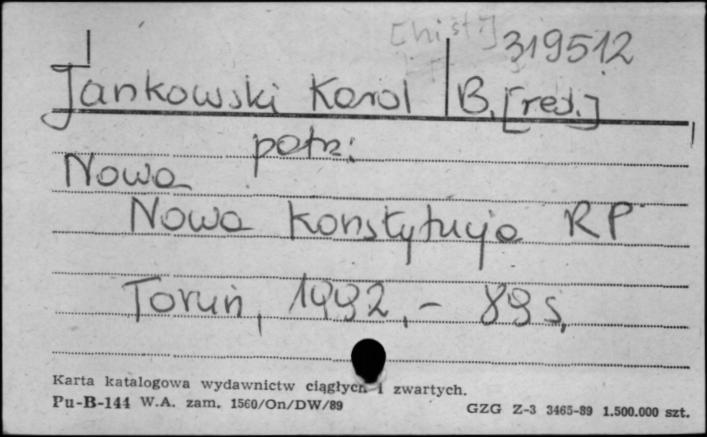 [hist.] 319512
Jankowski Karol B. [red.]
patrz:
Nowa
Nowa Konstytucja RP
Toruń, 1992, - 89 s,
Karta katalogowa wydawnictw ciągłych i zwartych.
Pu-B-144 W.A. zam. 1560/On/DW/89 GZG Z-3 3465-89 1.500.000 szt.